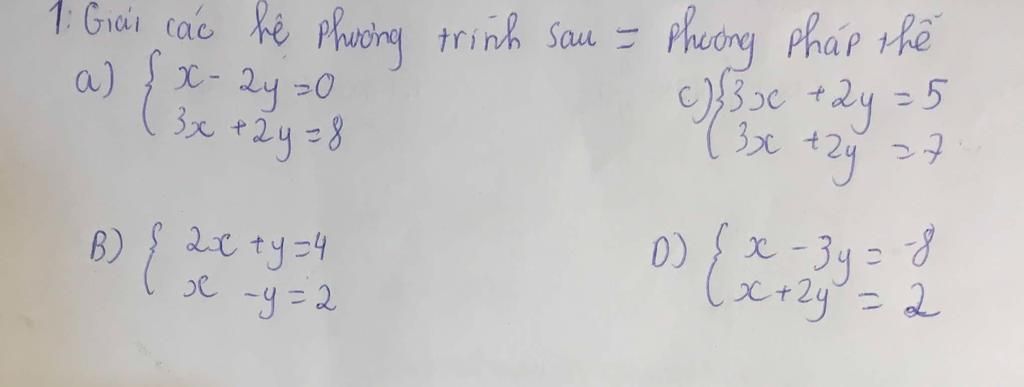 1: Giải các hệ phương trình sau = phương pháp thế
a) { x - 2y = 0
3x + 2y = 8
c) { 3x + 2y = 5
3x + 2y = 7
B) { 2x + y = 4
x - y = 2
D) { x - 3y = -8
x + 2y = 2